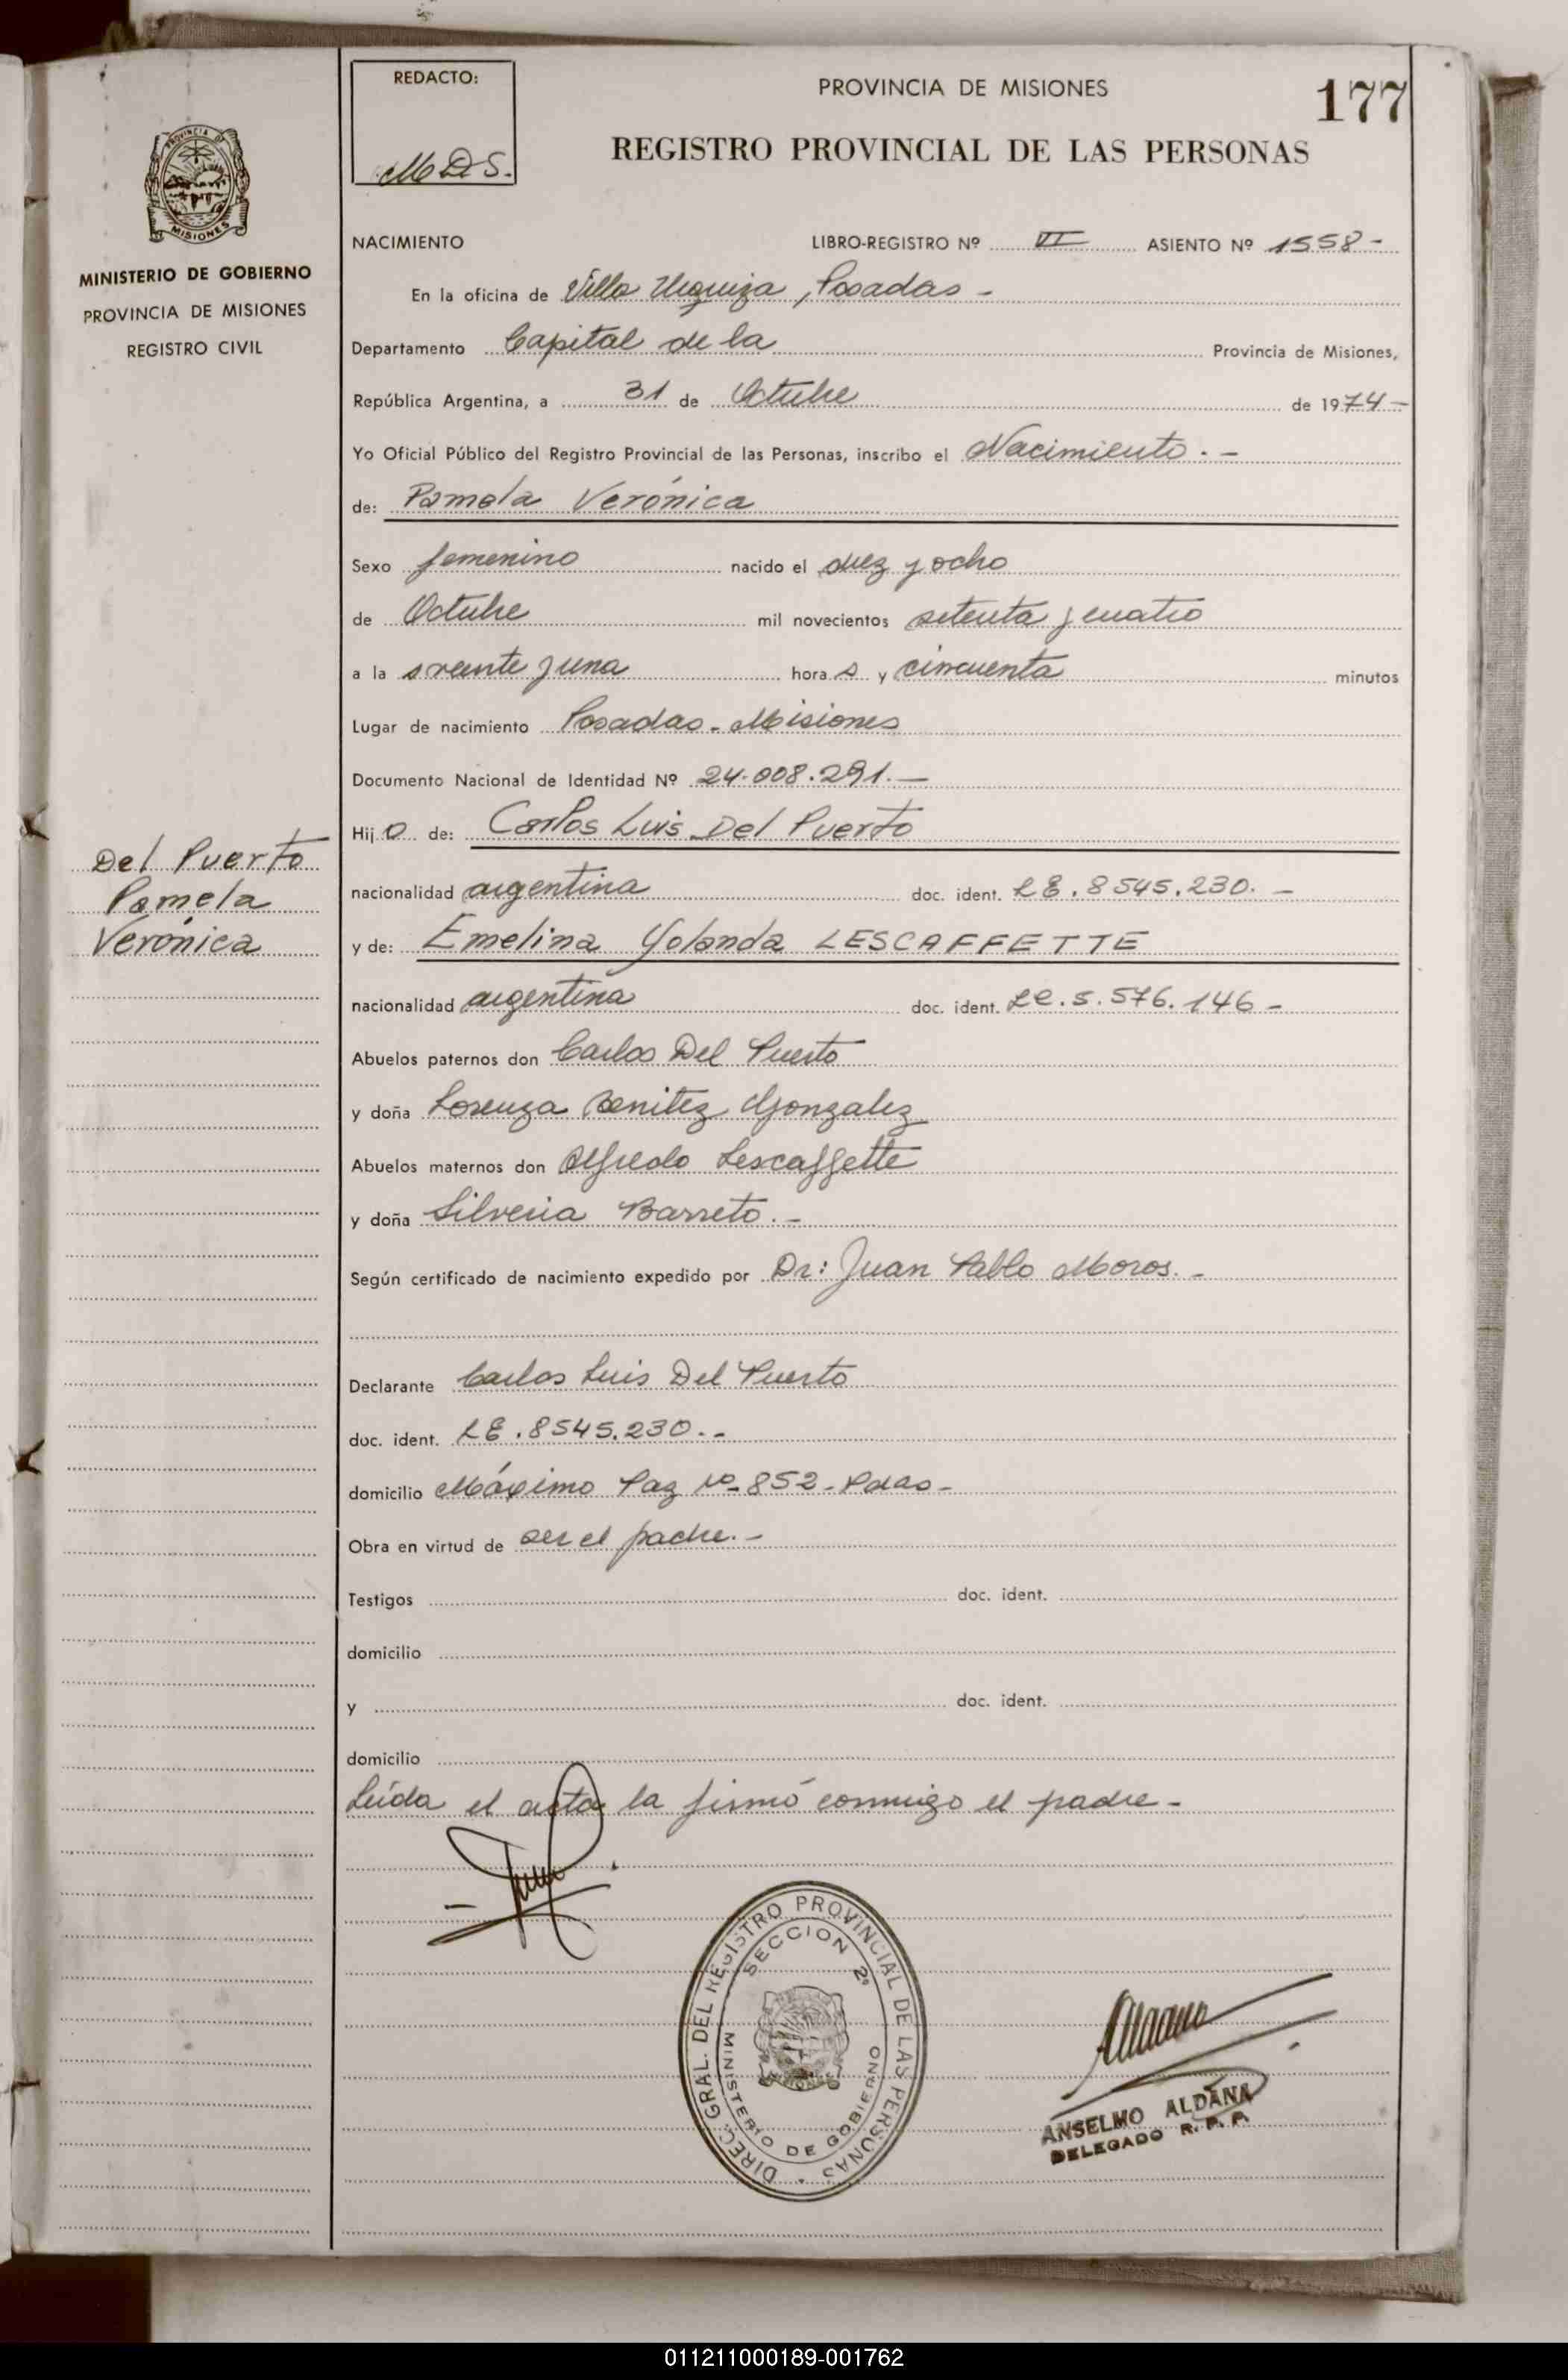 REDACTO:
M D S.
PROVINCIA DE MISIONES
177
REGISTRO PROVINCIAL DE LAS PERSONAS
PROVINCIA DE
MISIONES
MINISTERIO DE GOBIERNO
PROVINCIA DE MISIONES
REGISTRO CIVIL
NACIMIENTO LIBRO-REGISTRO Nº VI ASIENTO Nº 1558-
En la oficina de Villa Urquiza, Posadas -
Departamento Capital de la Provincia de Misiones,
República Argentina, a 31 de Octubre de 1974-
Yo Oficial Público del Registro Provincial de las Personas, inscribo el Nacimiento.-
de: Pamela Verónica
Sexo femenino nacido el diez y ocho
de Octubre mil novecientos setenta y cuatro
a la s veinte y una hora s y cincuenta minutos
Lugar de nacimiento Posadas - Misiones
Documento Nacional de Identidad Nº 24.008.291.-
Hij o de: Carlos Luis Del Puerto
Del Puerto
Pamela
Verónica
nacionalidad argentina doc. ident. LE. 8545.230.-
y de: Emelina Yolanda LESCAFFETTE
nacionalidad argentina doc. ident. LC. 5.576.146-
Abuelos paternos don Carlos Del Puerto
y doña Lorenza Benitez Gonzalez
Abuelos maternos don Alfredo Lescaffette
y doña Silveria Barreto.-
Según certificado de nacimiento expedido por Dr: Juan Pablo Moros.-
Declarante Carlos Luis Del Puerto
doc. ident. LE. 8545.230.-
domicilio Máximo Paz Nº 852 - Pdas -
Obra en virtud de ser el padre.-
Testigos doc. ident.
domicilio
y doc. ident.
domicilio
Leída el acta la firmó conmigo el padre -
DIREC. GRAL. DEL REGISTRO PROVINCIAL DE LAS PERSONAS
SECCION 2º
MINISTERIO DE GOBIERNO
ANSELMO ALDANA
DELEGADO R. P. P.
011211000189-001762